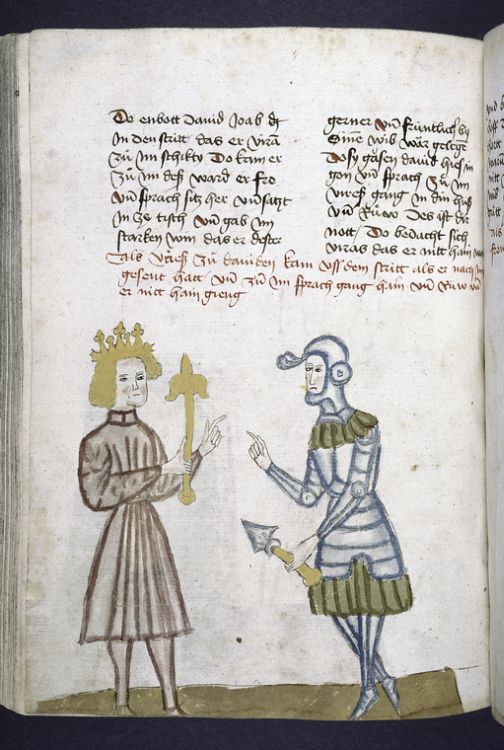 Do enbott dauid Joab dz
In den stritt das er vriã
zů im schikty Do kam er
zů im des ward er fro
vñ sprach sitz her vnd setzt
in ze tisch vñ gab im
starken win das er dester
gerner vñ früntlich by
sine wib wår gelege
Do sy gåsen dauid hies in
gon vñ sprach zů im
vries gang in din huß
vñ Růw des ist dir
nott Do bedacht sich
vrias das er nitt hain
Als vries zů dauiden kam vss dem stritt als er nach im
gesent hatt vñ zů im sprach gang hain vñ Růw vñ
er nitt hain gieng